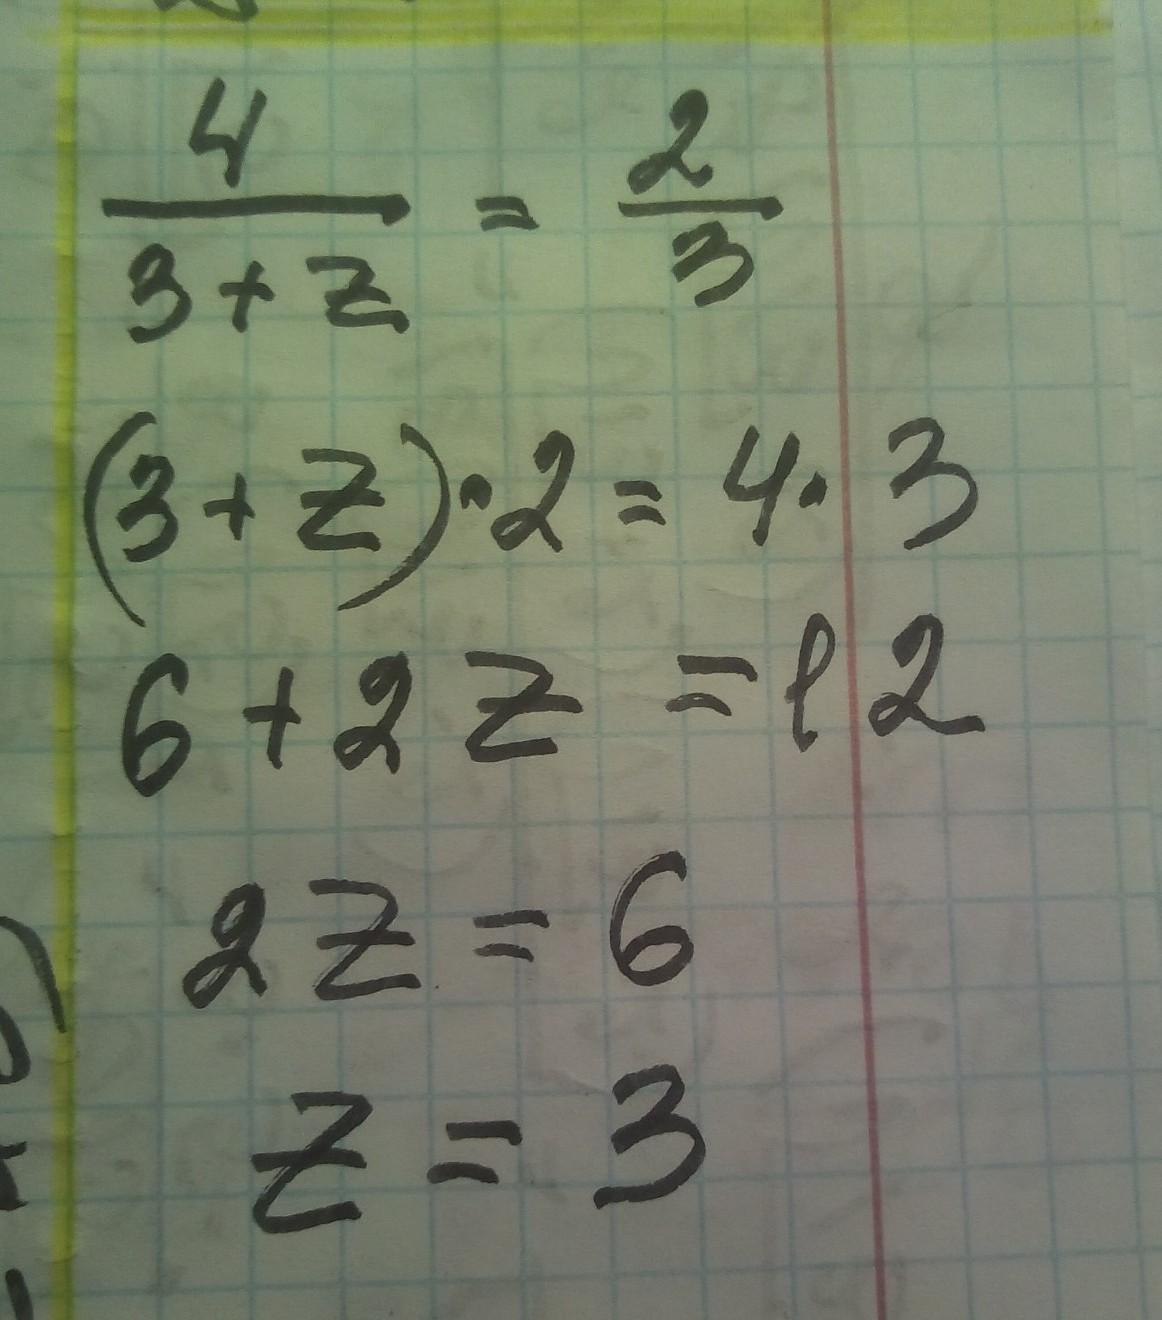 4/(3+z) = 2/3
(3+z)·2=4·3
6+2z=12
2z=6
z=3